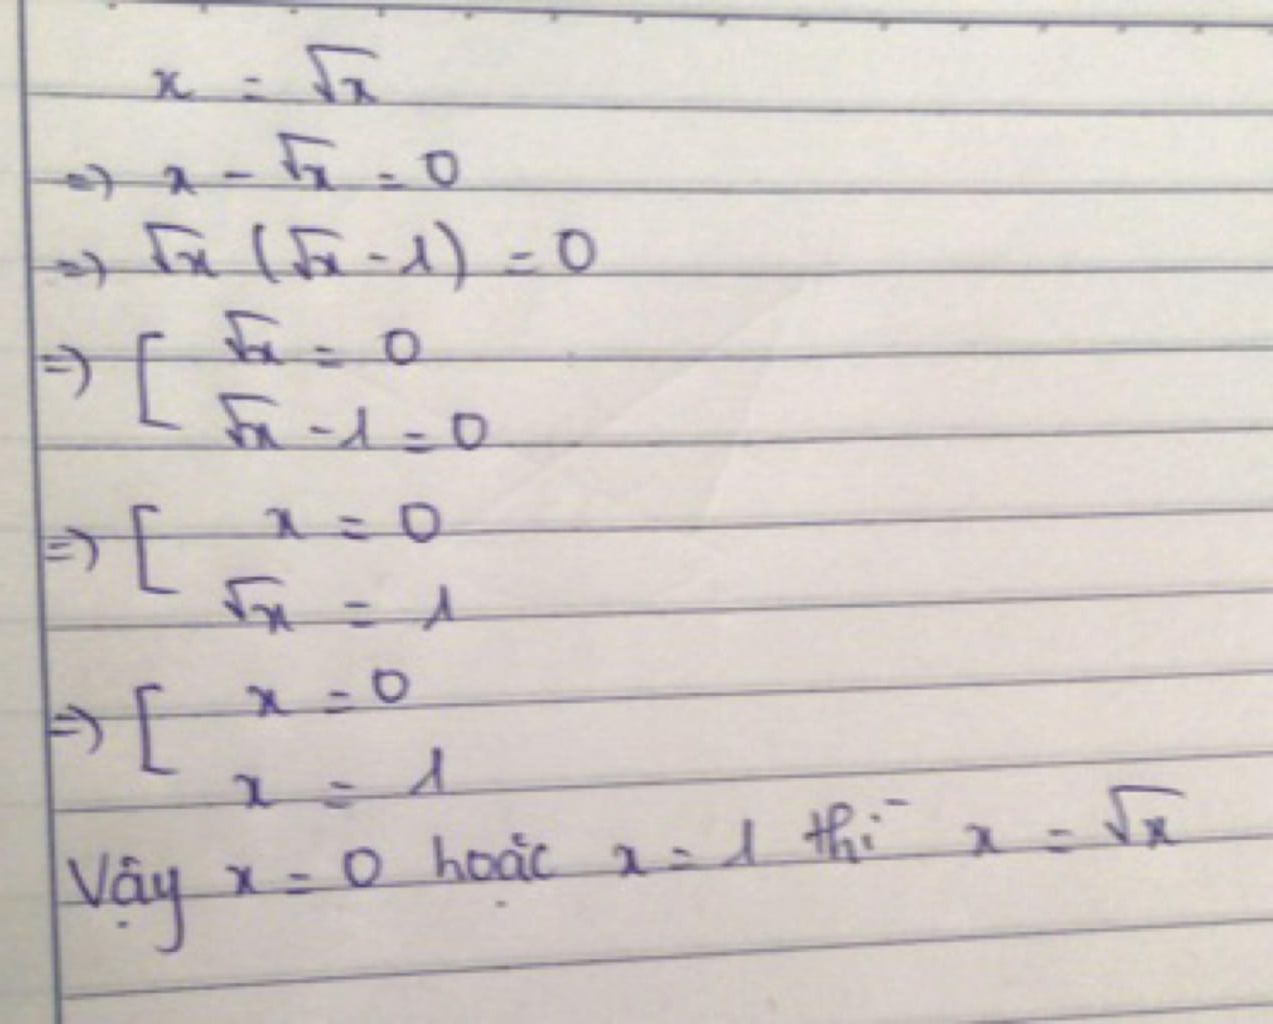 x = √x
=> x - √x = 0
=> √x (√x - 1) = 0
=> [ √x = 0
√x - 1 = 0
=> [ x = 0
√x = 1
=> [ x = 0
x = 1
Vậy x = 0 hoặc x = 1 thì x = √x